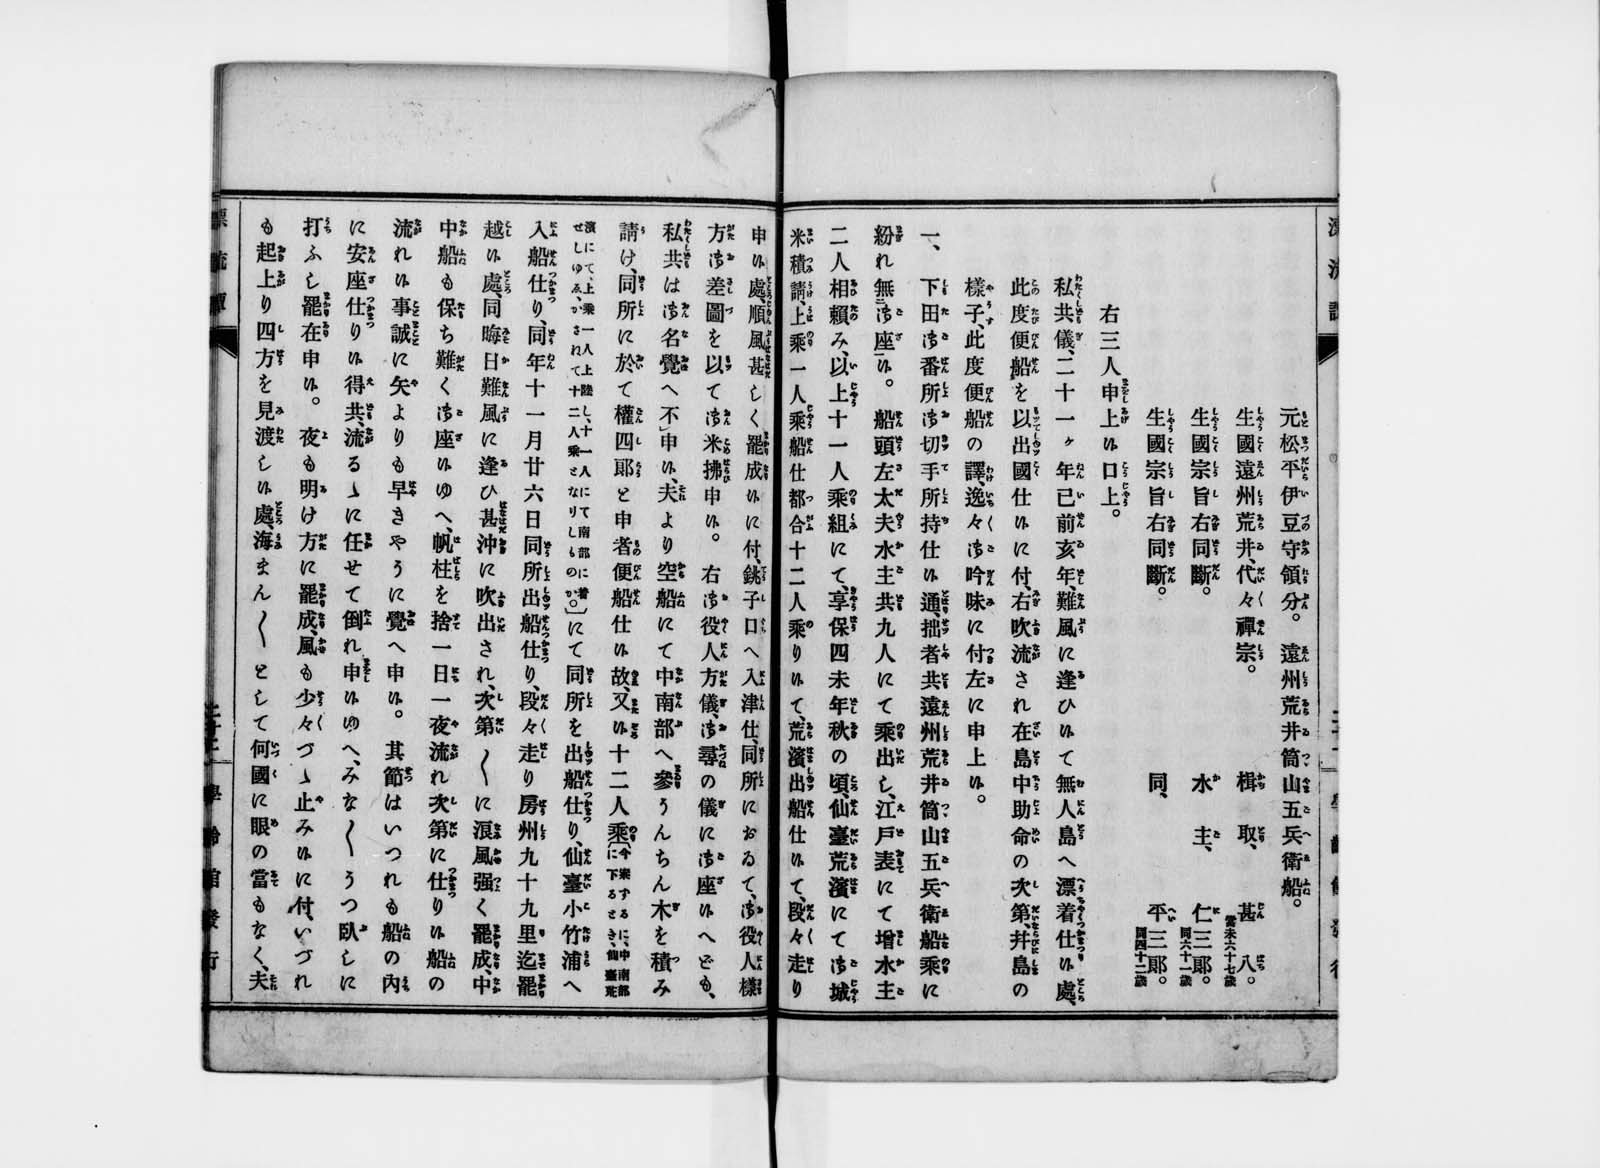 元松平伊豆守領分。遠州荒井筒山五兵衛船。
生國遠州荒井、代々禪宗。 楫取、甚八。當未六十七歲
生國宗旨右同斷。 水主、仁三郎。同六十一歲
生國宗旨右同斷。 同、平三郎。同四十二歲
右三人申上候口上。
私共儀、二十一ヶ年已前亥年、難風に逢ひ候て無人島へ漂着仕候處、
此度便船を以出國仕候に付、右吹流され在島中助命の次第、幷島の
樣子、此度便船の譯、逸々御吟味に付左に申上候。
一、下田御番所御切手所持仕候通、拙者共遠州荒井筒山五兵衛船乘に
紛れ無御座候。船頭左太夫水主共九人にて乘出し、江戶表にて增水主
二人相賴み、以上十一人乘組にて、享保四未年秋の頃、仙臺荒濱にて御城
米積請、上乘一人乘船仕都合十二人乘り候て、荒濱出船仕候て、段々走り
申候處、順風甚しく罷成候に付、銚子口へ入津仕、同所におゐて、御役人樣
方御差圖を以て御米拂申候。右御役人方儀、御尋の儀に御座候へども、
私共は御名覺へ不申候、夫より空船にて中南部へ參うんちん木を積み
請け、同所に於て權四郞と申者便船仕候故、又候十二人乘〔今案ずるに、中南部に下るとき、仙臺荒
濱にて、上乘一人上陸し、十一人にて南部に着せしゆゑ、かされて十二人乘となりしものか。〕にて同所を出船仕り、仙臺小竹浦へ
入船仕り、同年十一月廿六日同所出船仕り、段々走り房州九十九里迄罷
越候處、同晦日難風に逢ひ甚沖に吹出され、次第〱に浪風强く罷成、中
中船も保ち難く御座候ゆへ、帆柱を捨一日一夜流れ次第に仕り候船の
流れ候事誠に矢よりも早きやうに覺へ申候。其節はいつれも船の內
に安座仕り候得共、流るゝに任せて倒れ申候ゆへ、みな〱うつ臥しに
打ふし罷在申候。夜も明け方に罷成、風も少々づゝ止み候に付、いづれ
も起上り四方を見渡し候處、海まん〱として何國に眼の當もなく、夫